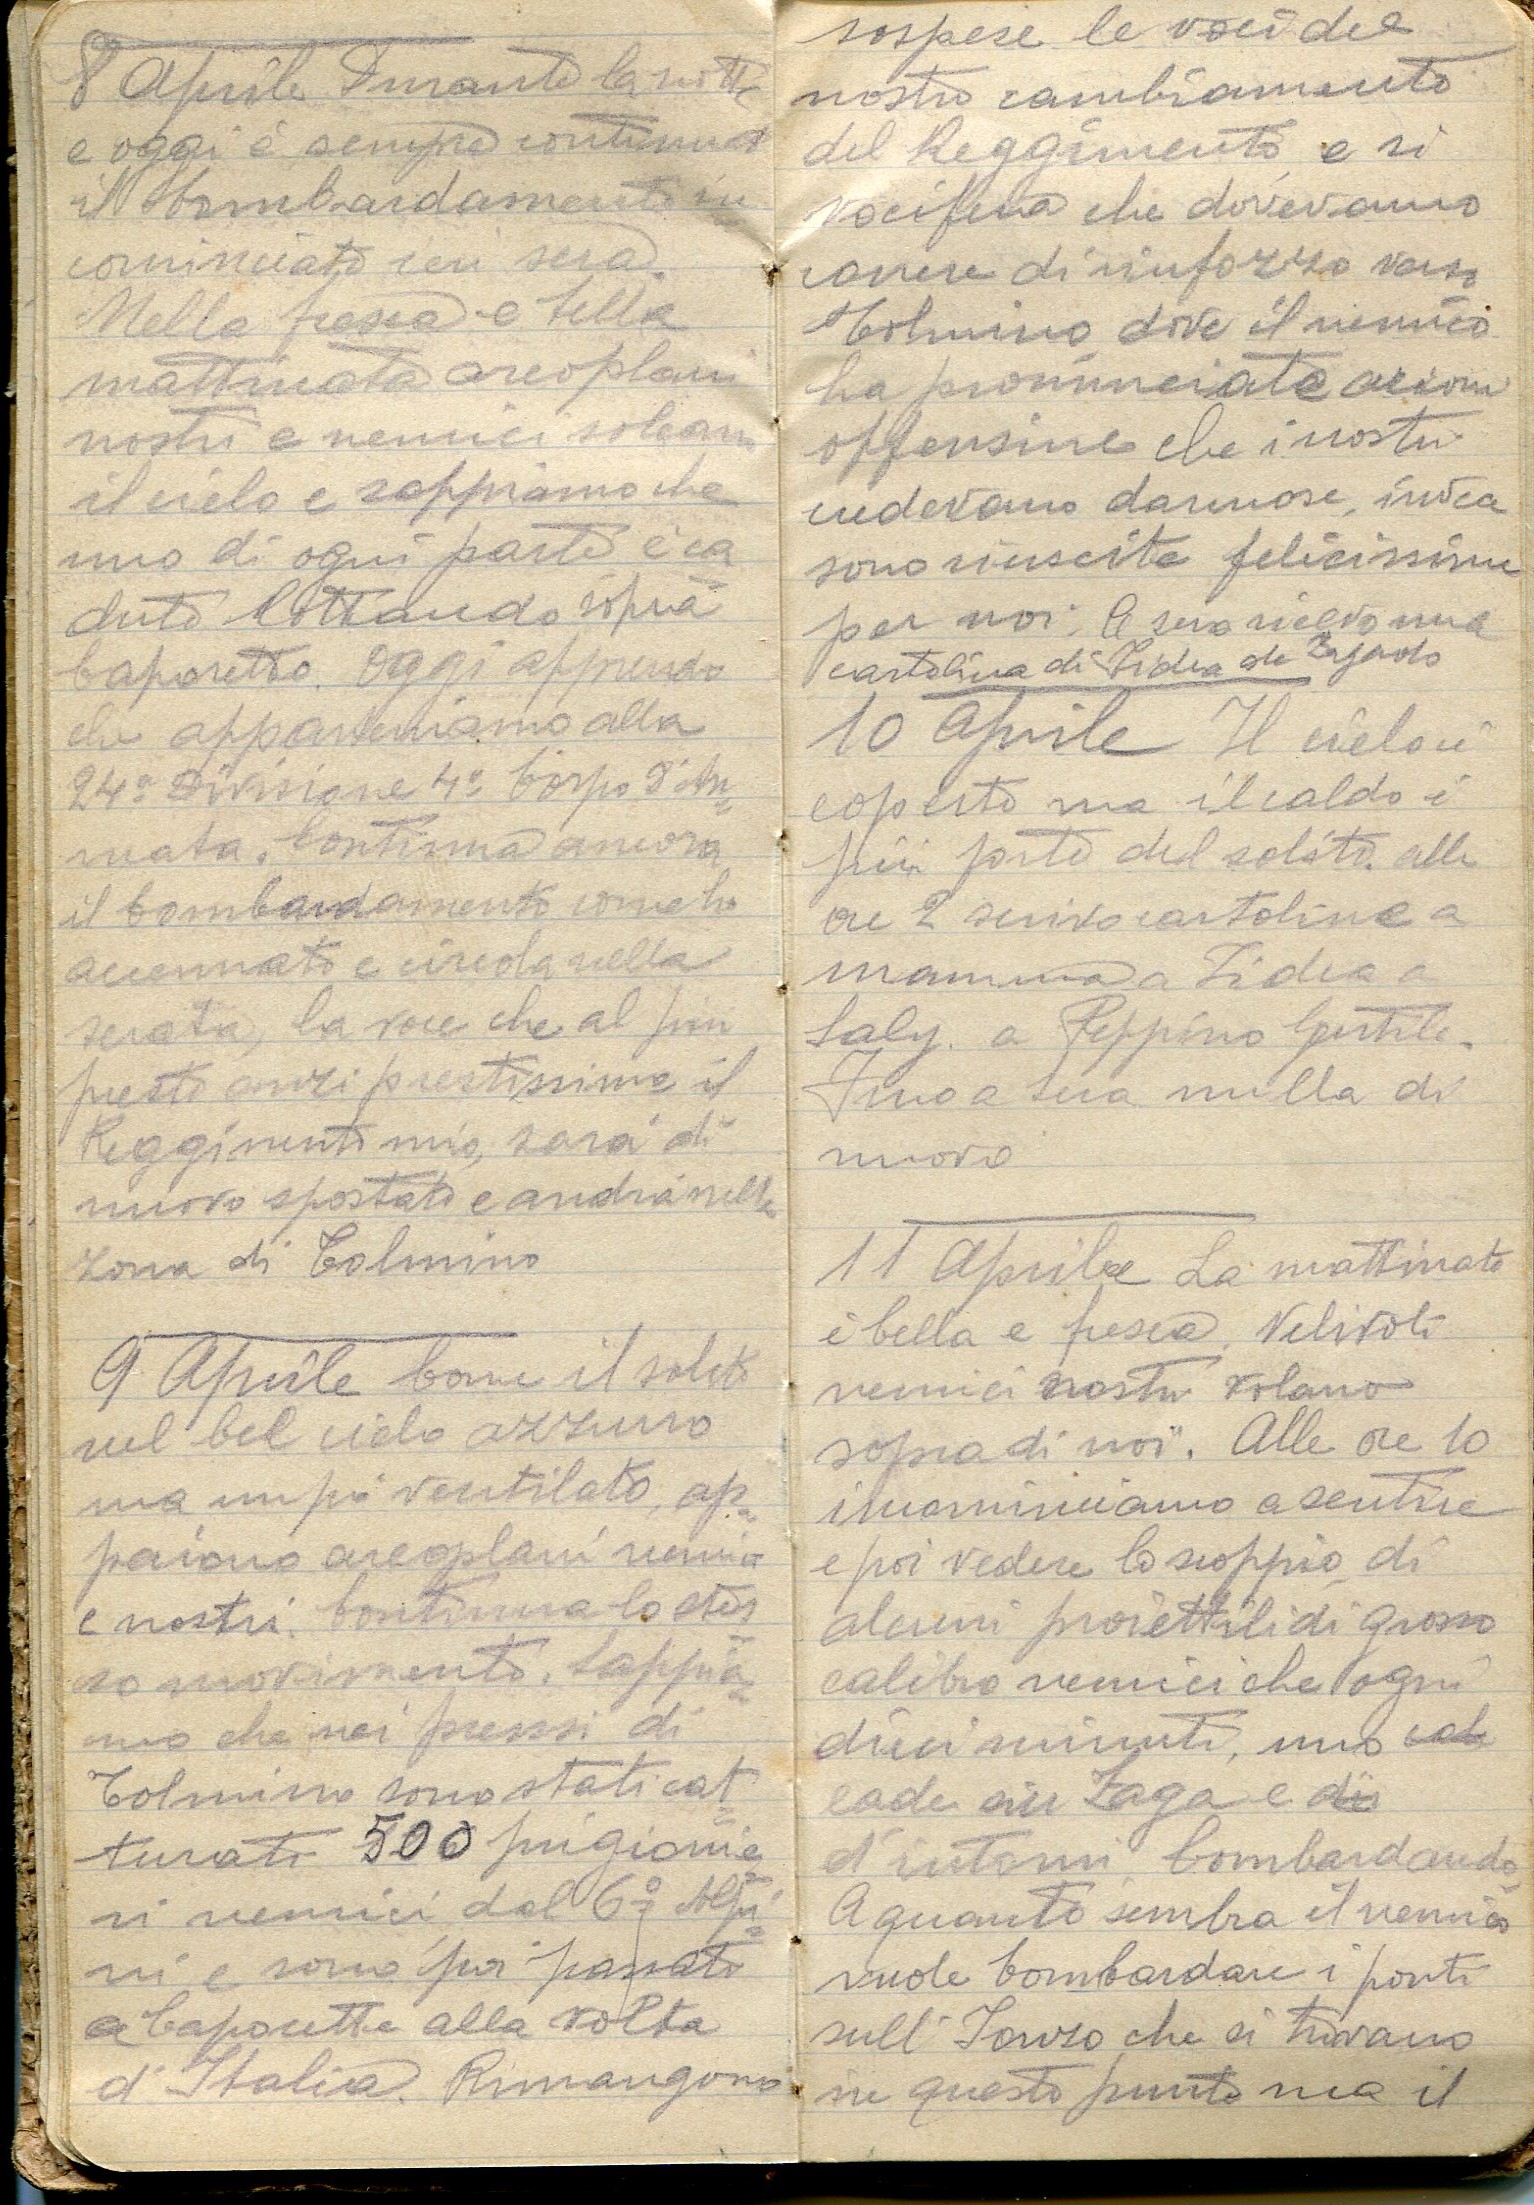 8 Aprile Durante la notte
e oggi è sempre continuato
il bombardamento in
cominciato ieri sera.
Nella fresca e bella
mattinata areoplani
nostri e nemici solcano
il cielo e sappiamo che
uno di ogni parte è ca
duto lottando sopra
Caporetto. Oggi apprendo
che apparteniamo alla
24ª Divisione 4º Corpo d'Ar=
mata. Continua ancora
il bombardamento come ho
accennato e circola nella
serata, la voce che al più
presto anzi prestissimo il
Reggimento mio, sarà di
nuovo spostato e andrà nella
zona di Tolmino
9 Aprile Come il solito
nel bel cielo azzurro
ma un pò ventilato, ap=
paiono areoplani nemici
e nostri. Continua lo stes
so movimento. Sappia=
mo che nei presssi di
Tolmino sono stati cat=
turati 500 prigionie=
ri nemici dal 6º Alpi=
ni e sono poi passati
a Caporetto alla volta
d'Italia. Rimangono
sospese le voci del
nostro cambiamento
del Reggimento e si
vocifera che dovevamo
correre di rinforzo verso
Tolmino dove il nemico
ha pronunciate azioni
offensive che i nostri
credevano dannose, invece
sono riuscite felicissime
per noi. A sera ricevo una
cartolina di Fidea da
10 Aprile Il cielo è
coperto ma il caldo è
più forte del solito. alle
ore 2 scrivo cartoline a
mamma a Fidea a
Saly. a Peppino Gentile.
Fino a sera nulla di
nuovo
11 Aprile La mattinata
è bella e fresca. Velivoli
nemici nostri volano
sopra di noi. Alle ore 10
incominciamo a sentire
e poi vedere lo scoppio di
alcuni proiettili di grosso
calibro nemici che ogni
dieci minuti, uno
cade in Zaga e
d'intorni bombardando.
A quanto sembra il nemico
vuole bombardare i ponti
sull'Isonzo che si trovano
in questo punto ma il